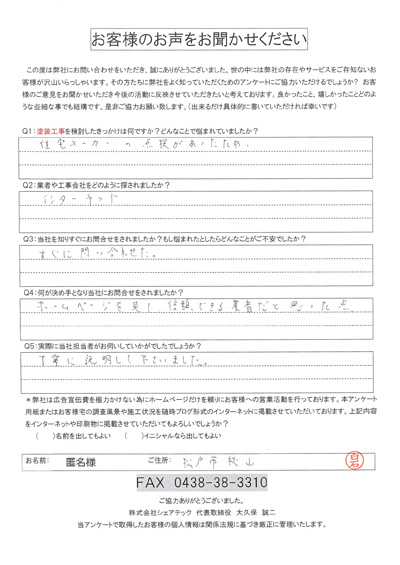 お客様のお声をお聞かせください
この度は弊社にお問い合わせをいただき、誠にありがとうございました。世の中には弊社の存在やサービスをご存知ないお
客様が沢山いらっしゃいます。その方たちに弊社をよく知っていただくためのアンケートにご協力いただけるでしょうか？ お客
様のご意見をお聞かせいただき今後の活動に反映させていただきたいと考えております。良かったこと、嬉しかったことどのよ
うな些細な事でも結構です。是非ご協力お願い致します。（出来るだけ具体的に書いていただければ幸いです）
Q1：塗装工事を検討したきっかけは何ですか？どんなことで悩まれていましたか？
住宅メーカーの点検があったため、
Q2：業者や工事会社をどのように探されましたか？
インターネット
Q3：当社を知りすぐにお問合せをされましたか？もし悩まれたとしたらどんなことがご不安でしたか？
すぐに問い合わせた。
Q4：何が決め手となり当社にお問合せをされましたか？
ホームページを見て信頼できる業者だと思った点
Q5：実際に当社担当者がお伺いしていかがでしたでしょうか？
丁寧に説明して下さいました。
＊弊社は広告宣伝費を極力かけない為にホームページだけを頼りにお客様への営業活動を行っております。本アンケート
用紙またはお客様宅の調査風景や施工状況を随時ブログ形式のインターネットに掲載させていただいております。上記内容
をインターネットや印刷物に掲載させていただいてもよろしいでしょうか？
（　　）名前を出してもよい　（　　）イニシャルなら出してもよい
お名前： 匿名様 ご住所： 松戸市秋山
FAX 0438-38-3310
ご協力ありがとうございました。
株式会社シェアテック 代表取締役 大久保 誠二
当アンケートで取得したお客様の個人情報は関係法規に基づき厳正に管理いたします。